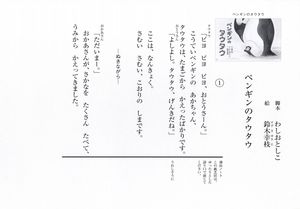 ペンギンのタウタウ
ペンギンのタウタウ
脚本 わしおとしこ
絵 鈴木幸枝
①
「ピヨ ピヨ ピヨ、おとうさーん。」
こうていペンギンの あかちゃん、
タウタウは、たまごから かえったばかりです。
「よしよし。タウタウ、げんきだね。」
ここは、なんきょく。
さむい さむい、こおりの しまです。
―ぬきながら―
「ただいまー。」
おかあさんが、さかなを たくさん たべて、
うみから かえってきました。